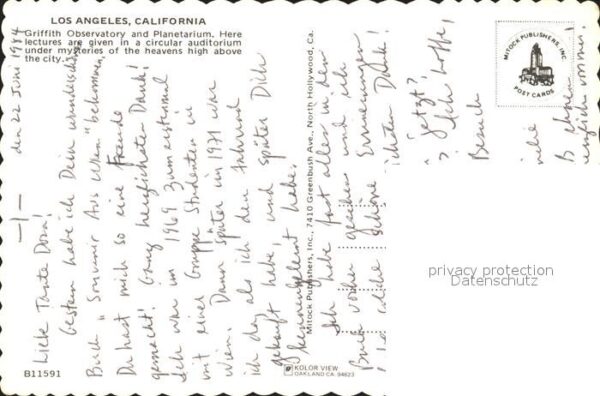 LOS ANGELES, CALIFORNIA
Griffith Observatory and Planetarium. Here
lectures are given in a circular auditorium
under mysteries of the heavens high above
the city.
—1—
den 22 Juni 1984
Liebe Tante Dora!
Gestern habe ich Dein wunderschönes
Buch "Souvenir Aus Wien" bekommen,
Du hast mich so eine Freude
gemacht! Ganz herzlichsten Dank!
Ich war im 1969 zum erstenmal
mit einer Gruppe Studenten in
Wien. Dann später in 1971 war
ich da, als ich den Fahrrad
gekauft habe, und später Dich
kennengelernt habe.
Ich habe fast alles in dem
Buch vorher gesehen und ich
solche schöne Erinnerungen
Dank!
jetzt?
Ich hoffe,
Besuch
B
B11591
Mitock Publishers, Inc., 7410 Greenbush Ave., North Hollywood, Ca.
KOLOR VIEW
OAKLAND CA 94623
MITOCK PUBLISHERS, INC.
POST CARDS
privacy protection
Datenschutz